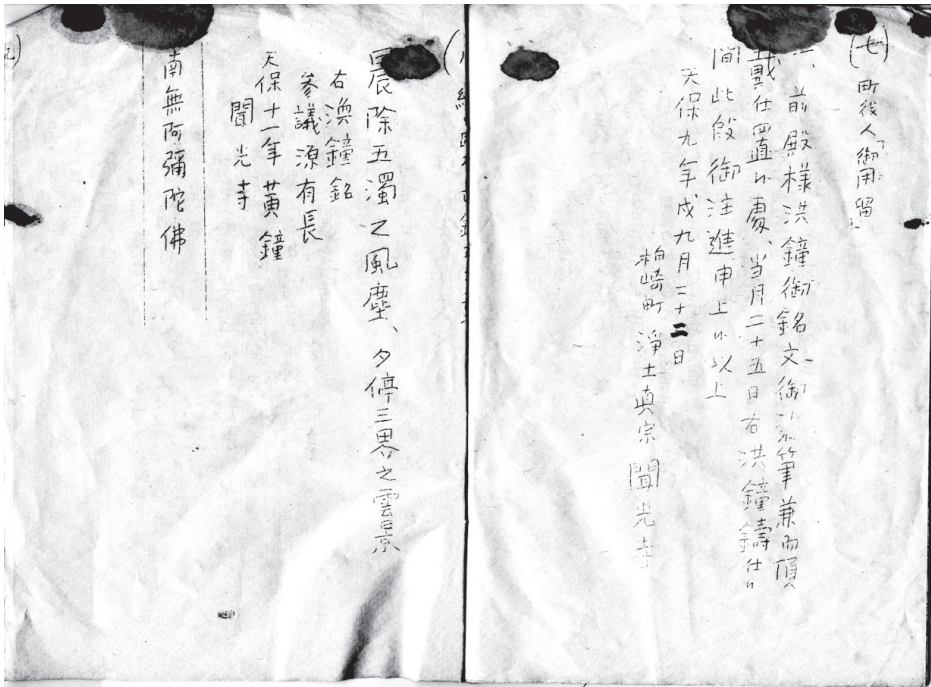 (七) 町役人「御用留」
一、前殿様洪鐘御銘文御染筆兼而頂
戴仕置候處、当月二十五日右洪鐘鑄仕候
間此段御注進申上候以上
天保九年戌九月二十二日
柏崎町 淨土真宗 聞光寺
晨除五濁之風塵、夕停三界之雲景
右渙鐘銘
參議源有長
天保十一年黄鐘
聞光寺
南無阿彌陀佛